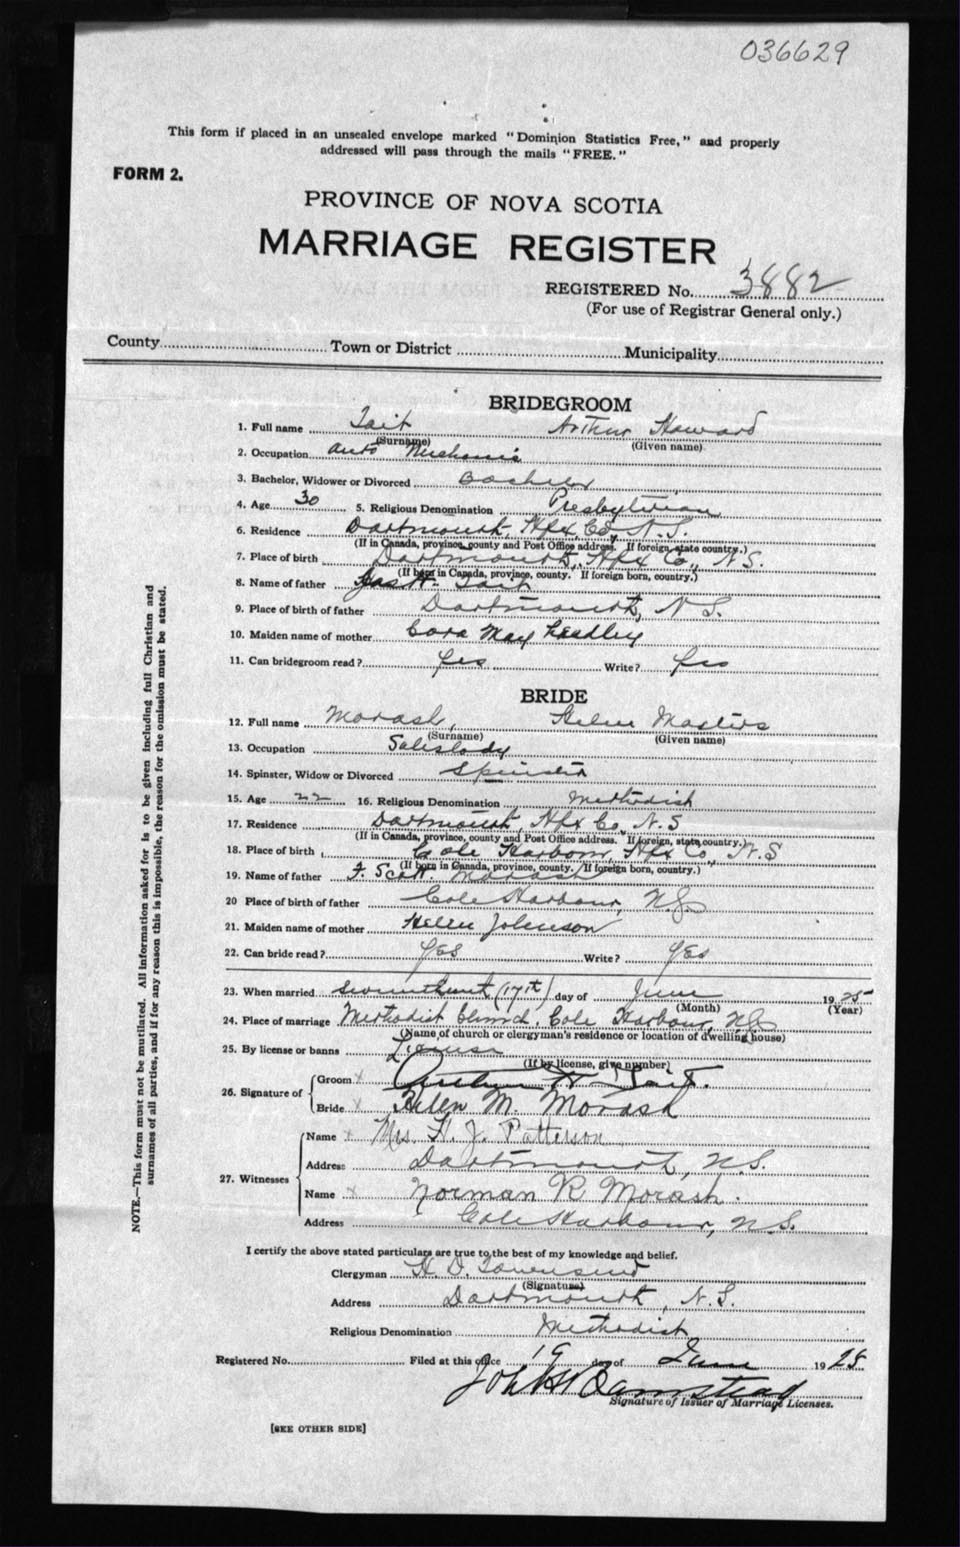 036629
This form if placed in an unsealed envelope marked "Dominion Statistics Free," and properly
addressed will pass through the mails "FREE."
FORM 2.
PROVINCE OF NOVA SCOTIA
MARRIAGE REGISTER
REGISTERED No. 3882
(For use of Registrar General only.)
County Town or District Municipality
BRIDEGROOM
1. Full name Tait Arthur Howard
(Surname) (Given name)
2. Occupation Auto Mechanic
3. Bachelor, Widower or Divorced Bachelor
4. Age 30 5. Religious Denomination Presbyterian
6. Residence Dartmouth, Hfx, Co, N.S.
(If in Canada, province, county and Post Office address. If foreign, state country.)
7. Place of birth Dartmouth, Hfx Co., N.S.
(If born in Canada, province, county. If foreign born, country.)
8. Name of father Jas H. Tait
9. Place of birth of father Dartmouth, N.S.
10. Maiden name of mother Cora May
11. Can bridegroom read? Yes Write? Yes
BRIDE
12. Full name Morash, Helen Masters
(Surname) (Given name)
13. Occupation Saleslady
14. Spinster, Widow or Divorced Spinster
15. Age 22 16. Religious Denomination Methodist
17. Residence Dartmouth, Hfx Co, N.S
(If in Canada, province, county and Post Office address. If foreign, state country.)
18. Place of birth Cole Harbour, Hfx Co., N.S
(If born in Canada, province, county. If foreign born, country.)
19. Name of father F. Scott Morash
20 Place of birth of father Cole Harbour, N.S.
21. Maiden name of mother Helen Johnson
22. Can bride read? Yes Write? Yes
23. When married seventeenth (17th) day of June 1925
(Month) (Year)
24. Place of marriage Methodist Church, Cole Harbour, N.S.
(Name of church or clergyman's residence or location of dwelling house)
25. By license or banns License
(If by license, give number)
26. Signature of Groom x Arthur H Tait.
Bride x Helen M. Morash
27. Witnesses Name x Mrs. H. J. Patterson
Address Dartmouth, N.S.
Name x Norman R Morash.
Address Cole Harbour, N.S.
I certify the above stated particulars are true to the best of my knowledge and belief.
Clergyman H. D. Townsend
(Signature)
Address Dartmouth, N.S.
Religious Denomination Methodist
Registered No. Filed at this office 19 day of June 1925
Signature of Issuer of Marriage Licenses.
[SEE OTHER SIDE]
NOTE.—This form must not be mutilated. All information asked for is to be given including full Christian and
surnames of all parties, and if for any reason this is impossible, the reason for the omission must be stated.